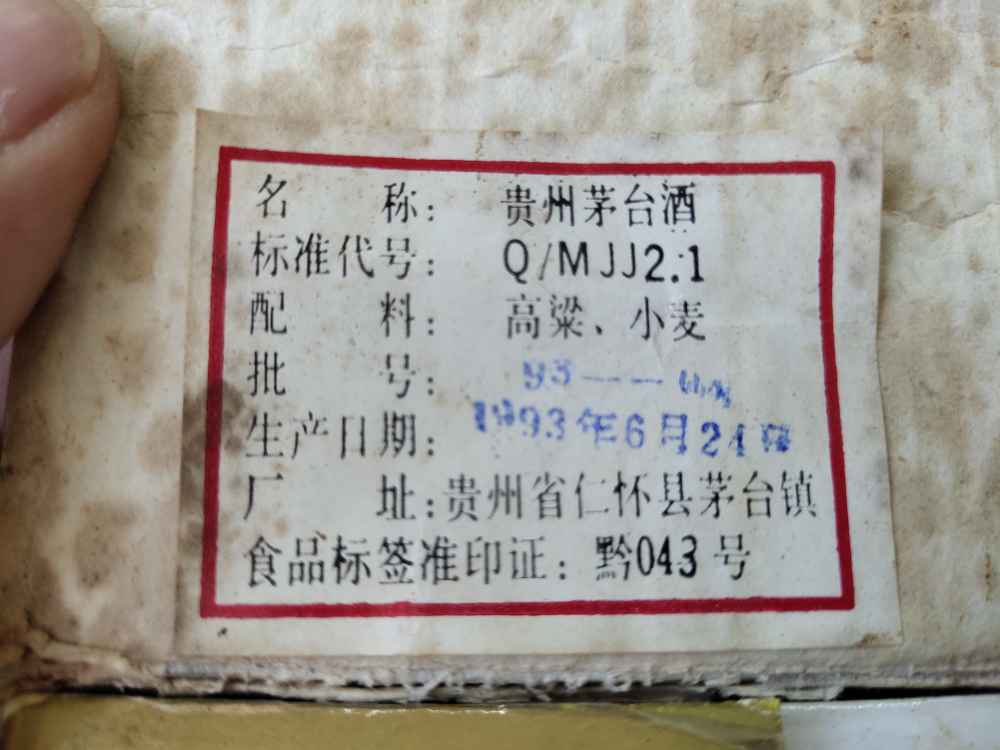 名称：贵州茅台酒
标准代号：Q/MJJ2.1
配料：高粱、小麦
批号：93——
生产日期：1993年6月24日
厂址：贵州省仁怀县茅台镇
食品标签准印证：黔043号